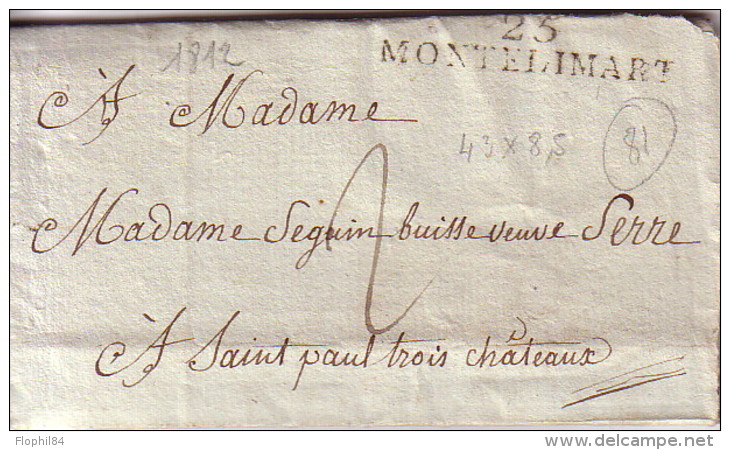 25
MONTELIMART
1812
À Madame
43 x 8,5
81
2
Madame Seguin buisse veuve Serre
À Saint paul trois châteaux
Flophil84
www.delcampe.net